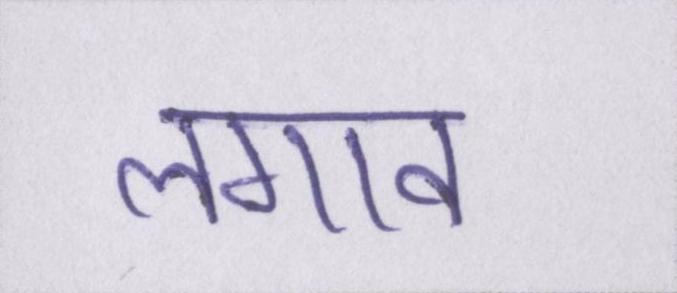 लगाव